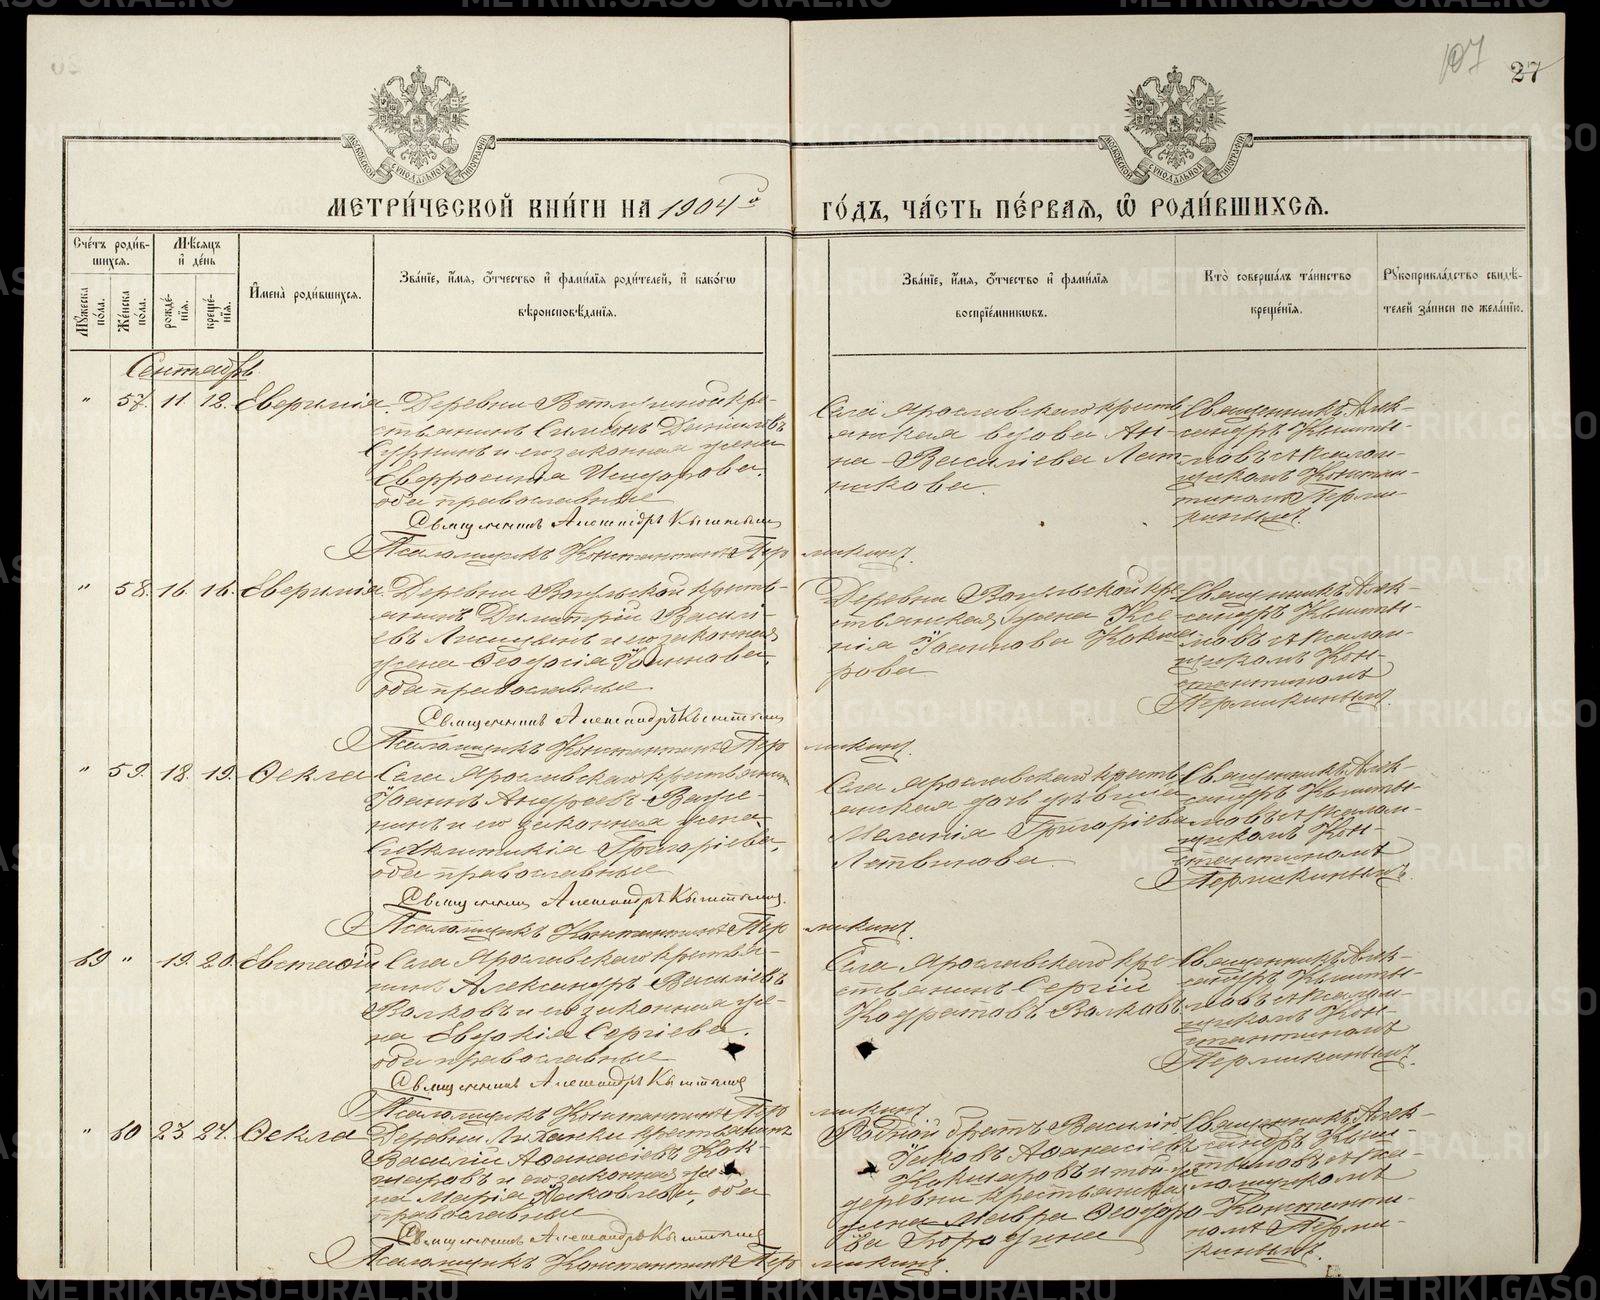 107
27
МЕТРИЧЕСКОЙ КНИГИ НА 1904й
ГОДЪ, ЧАСТЬ ПЕРВАЯ, Ѡ РОДИВШИХСЯ.
Счетъ родив-
шихся.
Мѣсяцъ
и день
Мужеска пола.
Женска пола.
рожде-
нія.
креще-
нія.
Имена родившихся.
Званіе, имя, отчество и фамилія родителей, и какогѡ
вѣроисповѣданія.
Званіе, имя, отчество и фамилія
воспріемникѡвъ.
Кто совершалъ таинство
крещенія.
Рукоприкладство свидѣ-
телей записи по желанію.
Сентябрь
" 57. 11. 12. Евѳрипія.
Деревни крe-
стьянинъ Симеонъ Даниловъ
и его законная жена
Евфросинія Исидорова,
оба православные
Священникъ Александръ Кыштымовъ
Псаломщикъ Константинъ Пермикинъ.
Села Ярославскаго крестья-
анская вдова Ан-
на Васильева Лат-
никова.
Священникъ Алек-
сандръ Кышты-
мовъ съ псалом-
щикомъ Констан-
тиномъ Перми-
кинымъ.
" 58. 16. 16.
Деревни крестья-
анинъ Димитрій Василі-
евъ и его законная
жена Ѳеодосія Іоаннова,
оба православные
Священникъ Александръ Кыштымовъ
Псаломщикъ Константинъ Пермикинъ.
Деревни кре-
стьянская жена Ксе-
нія Іоаннова Кокша-
рова
Священникъ Алек-
сандръ Кышты-
мовъ съ псалом-
щикомъ Кон-
стантиномъ
Пермикинымъ.
" 59. 18. 19. Ѳекла
Села Ярославскаго крестьянинъ
Іоаннъ Андреевъ Важе-
нинъ и его законная жена
Синклитикія Григоріева,
оба православные
Священникъ Александръ Кыштымовъ.
Псаломщикъ Константинъ Пермикинъ.
Села Ярославскаго кресть-
янская дочь дѣвица
Меланія Григоріева
Литвинова.
Священникъ Алек-
сандръ Кышты-
мовъ съ псалом-
щикомъ Кон-
стантиномъ
Пермикинымъ.
69 " 19. 20. Евстаѳій
Села Ярославскаго крестья-
нинъ Александръ Васильевъ
Волковъ и его законная же-
на Евдокія Сергіева.
оба православные
Священникъ Александръ Кыштымовъ
Псаломщикъ Константинъ Пермикинъ
Села Ярославскаго кре-
стьянинъ Сергій
Кодратовъ Волковъ.
Священникъ Алек-
сандръ Кышты-
мовъ съ псалом-
щикомъ Кон-
стантиномъ
Пермикинымъ.
" 60 23. 24. Ѳекла
Деревни Луханки крестьянинъ
Василій Аѳанасіевъ Кок-
шаровъ и его законная же-
на Марія Іаковлева, оба
православные
Священникъ Александръ Кыштымовъ
Псаломщикъ Константинъ Пермикинъ.
Родной братъ Василію
Іаковъ Аѳанасіевъ
Кокшаровъ и той-же
деревни крестьянская
жена Мавра Ѳеодоро-
ва Бородина
Священникъ Алек-
сандръ Кыш-
тымовъ съ пса-
ломщикомъ
Константи-
номъ Перми-
кинымъ.
METRIKI.GASO-URAL.RU